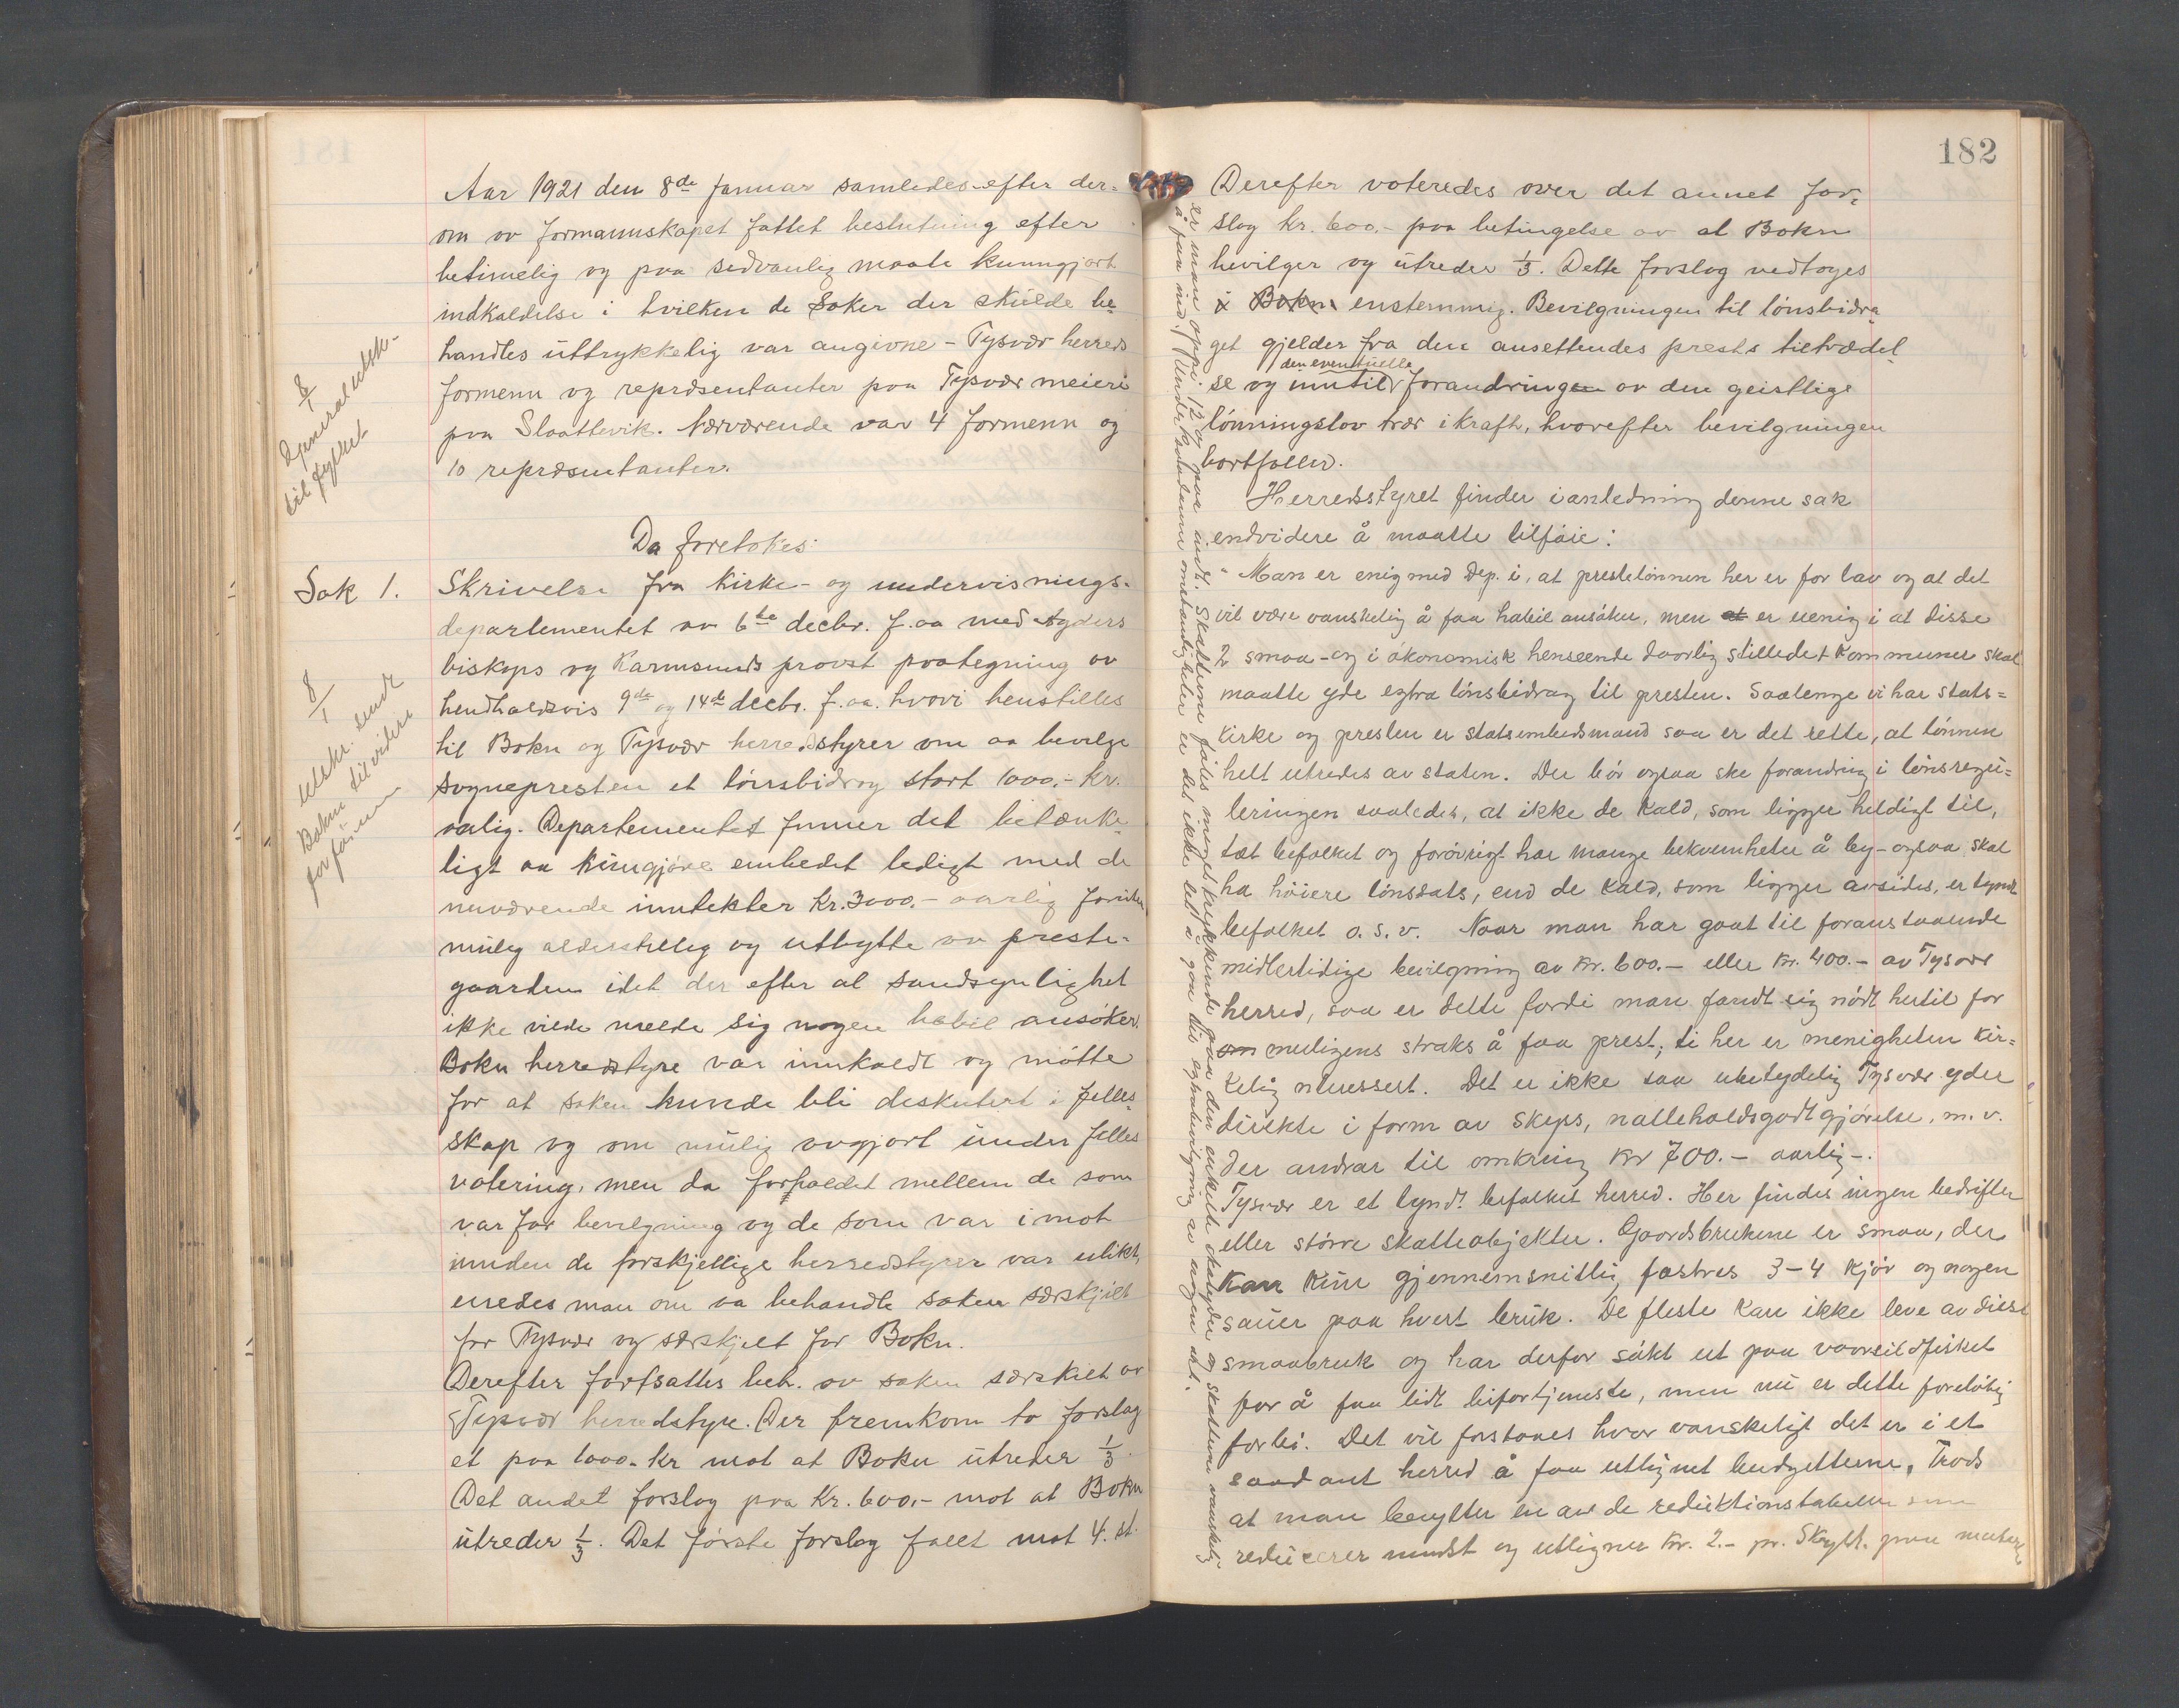 Aar 1921 den 8de Januar samledes efter der-
om av formannskapet fattet beslutning efter
betimelig og paa sedvanlig maate kunngjort
indkaldelse i hvilken de saker der skulde be-
handles uttrykkelig var angivne - Tysvær herreds
formenn og repræsentanter paa Tysvær meieri
paa Slaattevik. Nærværende var 4 formenn og
10 repræsentanter.
8/1
Generaludsk-
til fylket
Da foretokes:
Sak 1.
Skrivelse fra Kirke- og undervisnings-
departementet av 6te decbr. f.aa med Agders
biskops og Karmsunds provst paategning av
hendholdsvis 9de og 14de decbr. f.aa. hvori henstilles
til Bokn og Tysvær herredsstyrer om aa bevilge
sognepresten et lönsbidrag stort 1000.- kr.
aarlig. Departementet finner det betænke-
ligt aa kungjöre embedet ledigt med de
nuværende inntekter kr. 3000.- aarlig foruten
mulig alderstillæg og utbytte av preste-
gaarden idet der efter al sandsynlighet
ikke vilde melde sig nogen habil ansöker.
Bokn herredstyre var innkaldt og mötte
for at saken kunde bli deskutert i felles-
skap og om mulig avgjort under felles
votering, men da forholdet mellem de som
var for bevilgning og de som var imot
innden de forskjellige herredstyrer var ulikt,
enedes man om aa behandle saken særskilt
for Tysvær og særskjilt for Bokn.
Derefter fortsattes beh. av saken særskilt av
Tysvær herredstyre. Der fremkom to forslag
et paa 1000.- kr mot at Bokn utreder 1/3.
Det andet forslag paa kr. 600.- mot at Bokn
utreder 1/3. Det förste forslag falt mot 4 st.
8/1
utskr. sendt
Bokn til videre
forföining
182
Derefter voteredes over det annet for-
slag kr. 600.- paa betingelse av at Bokn
bevilger og utreder 1/3. Dette forslag vedtoges
i Bokn enstemmig. Bevilgningen til lönsbidra-
get gjelder fra den ansettendes prests tiltrædel-
se og inntil den eventuelle forandringen av den geistlige
lönningslov trær i kraft, hvorefter bevilgningen
bortfaller.
Herredsstyret finder i anledning denne sak
endvidere å maatte tilföie:
"Man er enig med Dep. i, at prestelönnen her er for lav og at det
vil være vanskelig å faa habil ansöker, men at er uenig i at disse
2 smaa- og i ökonomisk henseende daarlig stillede kommuner skal
maatte yde extra lönsbidrag til presten. Saalenge vi har stats-
kirke og presten er statsembedsmand saa er det rette, at lönnen
helt utredes av staten. Der bör ogsaa ske forandring i lönsregu-
leringen saaledes, at ikke de kald, som ligger heldigt til,
tæt befolket og forövrigt har mange bekvemheter å by - ogsaa skal
ha höiere lönssats, end de kald, som ligger avsides, er tyndt
befolket o.s.v. Naar man har gaat til foranstaaende
midlertidige bevilgning av kr. 600.- eller kr. 400.- av Tysvær
herred, saa er dette fordi man fandt sig nödt hertil for
om muligens straks å faa prest; ti her er menigheten kir-
kelig interessert. Det er ikke saa ubetydelig Tysvær yder
direkte i form av skyss, natteholdsgodtgjörelse, m.v.
der andrar til omkring kr 700.- aarlig-.
Tysvær er et tyndt befolket herred. Her findes ingen bedrifter
eller större skatteobjekter. Gaardsbrukene er smaa, der
kan kun gjennemsnitlig fostres 3-4 kjör og nogen
sauer paa hvert bruk. De fleste kan ikke leve av disse
smaabruk og har derfor sökt ut paa vaarsildfisket
for å faa lidt bifortjeneste, men nu er dette foreløbig
forbi. Det vil forstaaes hvor vanskeligt det er i et
saadant herred å faa utlignet budgetterne. Trods
at man benytter en av de reduktionstabeller som
reducerer mindst og utligner kr. 2.- pr. Skyld. paa
er man oppi 12 og paa indt. Skatterne föles meget trykkende paa den enkelte skatyder og skatterne vanskelig
å faa ind. Under saadanne omstendigheter er det ikke let å gaa til extrabevilgning av nogen art.